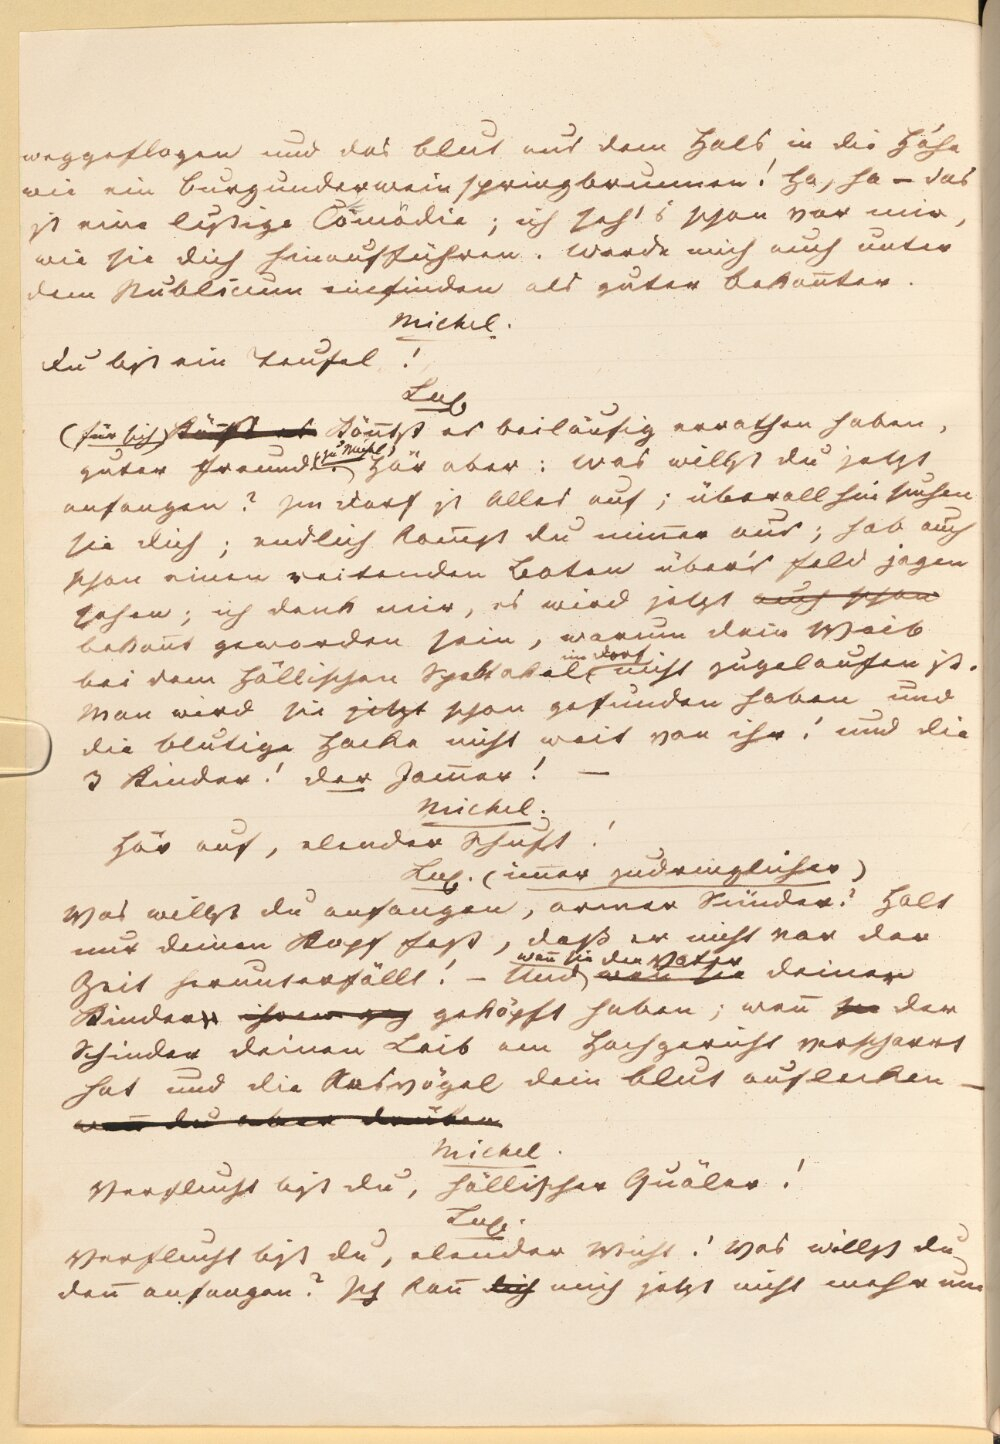 weggeflogen und das Blut aus dem Hals in die Höhe
wie ein Burgunderweinspringbrunnen! Ha, ha – das
ist eine lustige Comödie; ich seh's schon vor mir,
wie sie dich hinaufführen. Werde mich auch unter
dem Publicum einfinden als guter Bekañter.
Michel.
Du bist ein Teufel!
Luc.
(für sich) Köñst es Köñtst es beiläufig errathen haben,
guter Freund. (zu Michel) Hör aber: Was willst du jetzt
anfangen? Im Dorf ist Alles auf; überall hin suchen
sie dich; endlich kom̃st du nim̃er aus; hab auch
schon einen reitenden Boten über's Feld jagen
sehen; ich denk mir, es wird jetzt auch schon
bekañt geworden sein, warum dein Weib
bei dem höllischen Spektakel im Dorf nicht zugelaufen ist.
Man wird sie jetzt schon gefunden haben und
die blutige Hacke nicht weit von ihr! und die
3 Kinder! der Jam̃er! –
Michel.
Hör auf, elender Schuft!
Luc. (im̃er zudringlicher)
Was willst du anfangen, armer Sünder? Halt
nur deinen Kopf fest, daß er nicht vor der
Zeit herunterfällt! – Und weñ sie weñ sie den Vater deiner
Kinder ihren geköpft haben; weñ sie der
Schinder deinen Leib am Hochgericht verscharrt
hat und die Rasvögel dein Blut auflecken –
weñ du aber drüben
Michel.
Verflucht bist du, höllischer Quäler!
Luc.
Verflucht bist du, elender Wicht! Was willst du
deñ anfangen? Ich kañ dich mich jetzt nicht mehr um